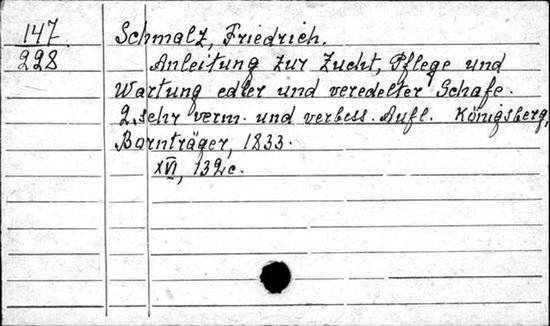 147 Schmalz, Friedrich.
228 Anleitung zur Zucht, Pflege und
Wartung edler und veredelter Schafe.
2. sehr verm. und verbess. Aufl. Königsberg,
Bornträger, 1833.
XVI, 132 c.